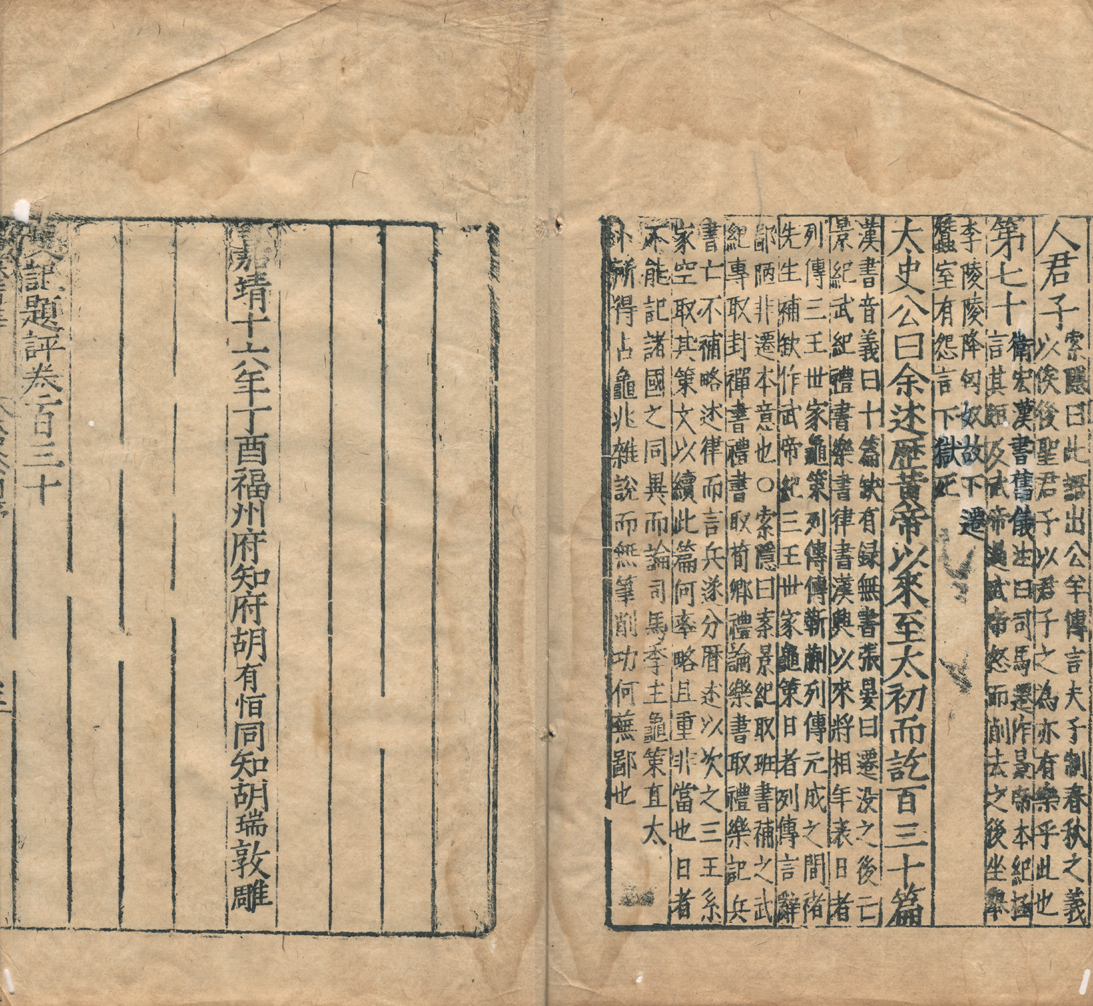 人君子
索隱曰此語出公羊傳言夫子制春秋之義
以俟後聖君子以君子之為亦有樂乎此也
第七十
衛宏漢書舊儀注曰司馬遷作景帝本紀極
言其短及武帝過武帝怒而削去之後坐舉
李陵陵降匈奴故下遷
蠶室有怨言下獄死
太史公曰余述歷黃帝以來至太初而訖百三十篇
漢書音義曰十篇缺有録無書張晏曰遷没之後亡
景紀武紀禮書樂書律書漢興以來將相年表日者
列傳三王世家龜策列傳傅靳蒯列傳元成之間褚
先生補缺作武帝紀三王世家龜策日者列傳言辭
鄙陋非遷本意也○索隱曰案景紀取班書補之武
紀專取封禪書禮書取荀卿禮論樂書取禮樂記兵
書亡不補略述律而言兵遂分曆述以次之三王系
家空取其策文以續此篇何率略且重非當也日者
不能記諸國之同異而論司馬季主龜策直太
卜所得占龜兆雜說而無筆削功何蕪鄙也
嘉靖十六年丁酉福州府知府胡有恒同知胡瑞敦雕
史記題評卷一百三十